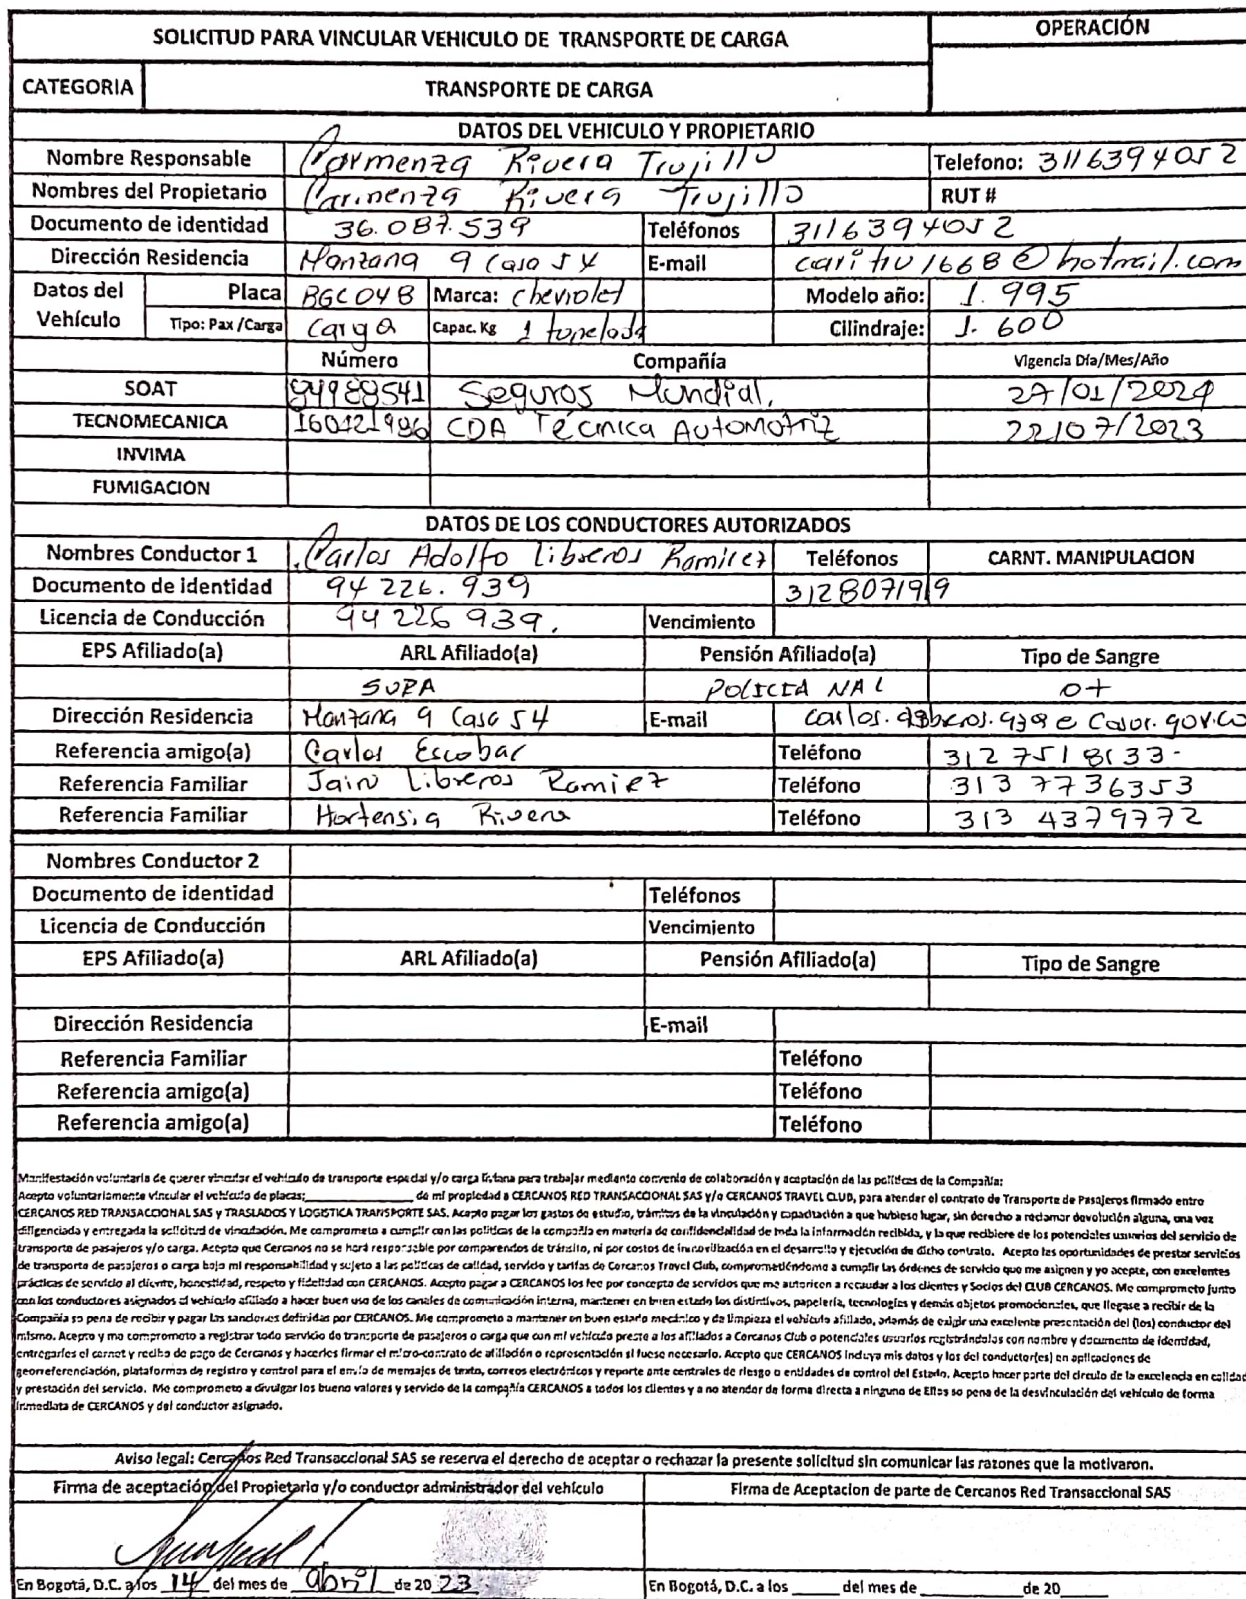 SOLICITUD PARA VINCULAR VEHICULO DE TRANSPORTE DE CARGA
OPERACIÓN
CATEGORIA TRANSPORTE DE CARGA
DATOS DEL VEHICULO Y PROPIETARIO
Nombre Responsable Carmenza Rivera Trujillo Telefono: 3116394052
Nombres del Propietario Carmenza Rivera Trujillo RUT #
Documento de identidad 36.087.539 Teléfonos 3116394052
Dirección Residencia Manzana 9 Casa 54 E-mail caritru1668@hotmail.com
Datos del Vehículo Placa BGC048 Marca: Chevrolet Modelo año: 1.995
Tipo: Pax /Carga Carga Capac. Kg 1 tonelada Cilindraje: 1.600
Número Compañía Vigencia Día/Mes/Año
SOAT 84988541 Seguros Mundial. 27/01/2024
TECNOMECANICA 160121996 CDA Técnica Automotriz 22/07/2023
INVIMA
FUMIGACION
DATOS DE LOS CONDUCTORES AUTORIZADOS
Nombres Conductor 1 Carlos Adolfo Libreros Ramirez Teléfonos CARNT. MANIPULACION
Documento de identidad 94 226.939 3128071919
Licencia de Conducción 94 226 939. Vencimiento
EPS Afiliado(a) ARL Afiliado(a) Pensión Afiliado(a) Tipo de Sangre
SURA POLICIA NAL O+
Dirección Residencia Manzana 9 Casa 54 E-mail
Referencia amigo(a) Carlos Escobar Teléfono 312 7518133-
Referencia Familiar Jairo Libreros Ramirez Teléfono 313 7736353
Referencia Familiar Hortensia Rivera Teléfono 313 4379772
Nombres Conductor 2
Documento de identidad Teléfonos
Licencia de Conducción Vencimiento
EPS Afiliado(a) ARL Afiliado(a) Pensión Afiliado(a) Tipo de Sangre
Dirección Residencia E-mail
Referencia Familiar Teléfono
Referencia amigo(a) Teléfono
Referencia amigo(a) Teléfono
Manifestación voluntaria de querer vincular el vehículo de transporte especial y/o carga liviana para trabajar mediante convenio de colaboración y aceptación de las políticas de la Compañía:
Acepto voluntariamente vincular el vehículo de placas:____________ de mi propiedad a CERCANOS RED TRANSACCIONAL SAS y/o CERCANOS TRAVEL CLUB, para atender el contrato de Transporte de Pasajeros firmado entre
CERCANOS RED TRANSACCIONAL SAS y TRASLADOS Y LOGISTICA TRANSPORTE SAS. Acepto pagar los gastos de estudio, trámites de la vinculación y capacitación a que hubiese lugar, sin derecho a reclamar devolución alguna, una vez
diligenciada y entregada la solicitud de vinculación. Me comprometo a cumplir con las políticas de la compañía en materia de confidencialidad de toda la información recibida, y la que recibiere de los potenciales usuarios del servicio de
transporte de pasajeros y/o carga. Acepto que Cercanos no se hará responsable por comparendos de tránsito, ni por costos de inmovilización en el desarrollo y ejecución de dicho contrato. Acepto las oportunidades de prestar servicios
de transporte de pasajeros o carga bajo mi responsabilidad y sujeto a las políticas de calidad, servicio y tarifas de Cercanos Travel Club, comprometiéndome a cumplir las órdenes de servicio que me asignen y yo acepte, con excelentes
prácticas de servicio al cliente, honestidad, respeto y fidelidad con CERCANOS. Acepto pagar a CERCANOS los fee por concepto de servicios que me autoricen a recaudar a los clientes y Socios del CLUB CERCANOS. Me comprometo junto
con los conductores asignados al vehículo afiliado a hacer buen uso de los canales de comunicación interna, mantener en buen estado los distintivos, papelería, tecnologías y demás objetos promocionales, que llegase a recibir de la
Compañía so pena de recibir y pagar las sanciones definidas por CERCANOS. Me comprometo a mantener en buen estado mecánico y de limpieza el vehículo afiliado, además de exigir una excelente presentación del (los) conductor del
mismo. Acepto y me comprometo a registrar todo servicio de transporte de pasajeros o carga que con mi vehículo preste a los afiliados a Cercanos Club o potenciales usuarios registrándolas con nombre y documento de identidad,
entregarles el carnet y recibo de pago de Cercanos y hacerles firmar el micro-contrato de afiliación o representación si fuese necesario. Acepto que CERCANOS incluya mis datos y los del conductor(es) en aplicaciones de
georreferenciación, plataformas de registro y control para el envío de mensajes de texto, correos electrónicos y reporte ante centrales de riesgo o entidades de control del Estado. Acepto hacer parte del círculo de la excelencia en calidad
y prestación del servicio. Me comprometo a divulgar los bueno valores y servicio de la compañía CERCANOS a todos los clientes y a no atender de forma directa a ninguno de Ellos so pena de la desvinculación del vehículo de forma
inmediata de CERCANOS y del conductor asignado.
Aviso legal: Cercanos Red Transaccional SAS se reserva el derecho de aceptar o rechazar la presente solicitud sin comunicar las razones que la motivaron.
Firma de aceptación del Propietario y/o conductor administrador del vehículo Firma de Aceptacion de parte de Cercanos Red Transaccional SAS
En Bogotá, D.C. a los 14 del mes de abril de 20 23 En Bogotá, D.C. a los _____ del mes de __________ de 20_____